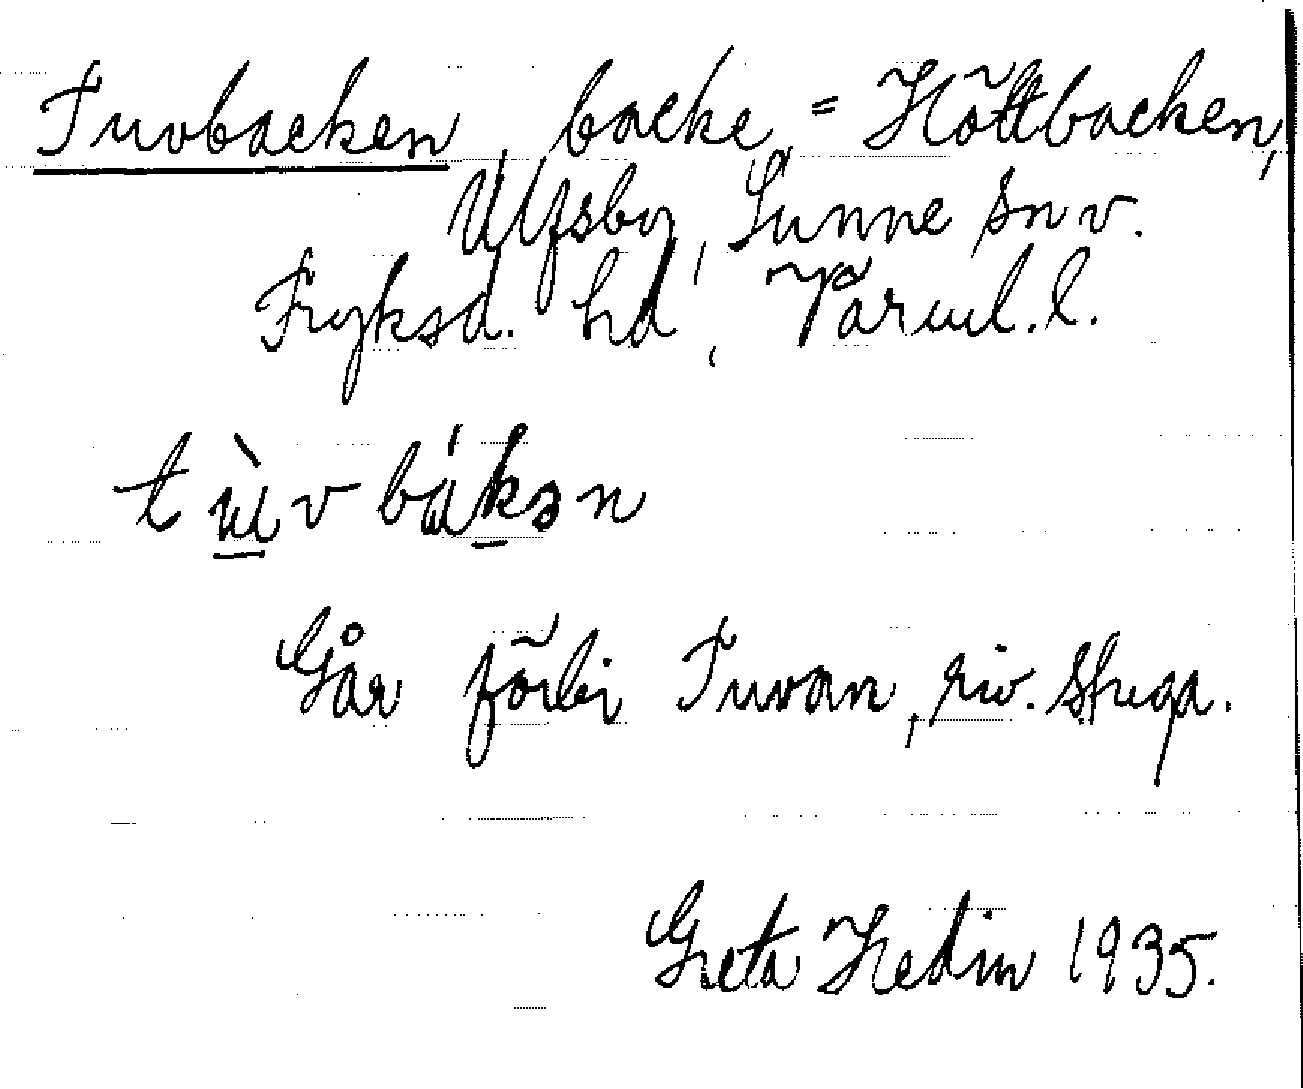 Tuvbacken, backe, = Höttbacken,
Ulfsby, Sunne sn v.
Fryksd. hd, Värml. l.
tùvbákən
Går förbi Tuvan, riv. stuga.
Greta Hedin 1935.